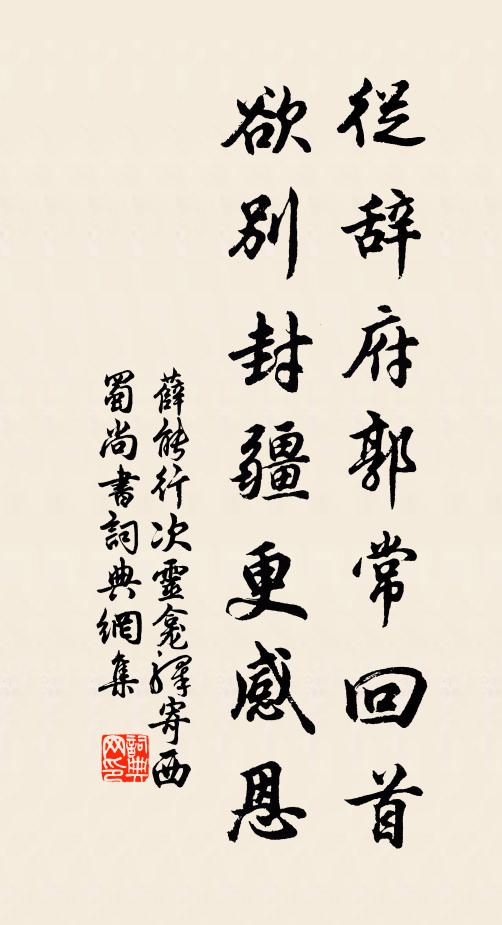 從辞府郭常回首
欲別封疆更感恩
薛能行次靈龕驛寄西
蜀尚書詞典網集
詞典
网印